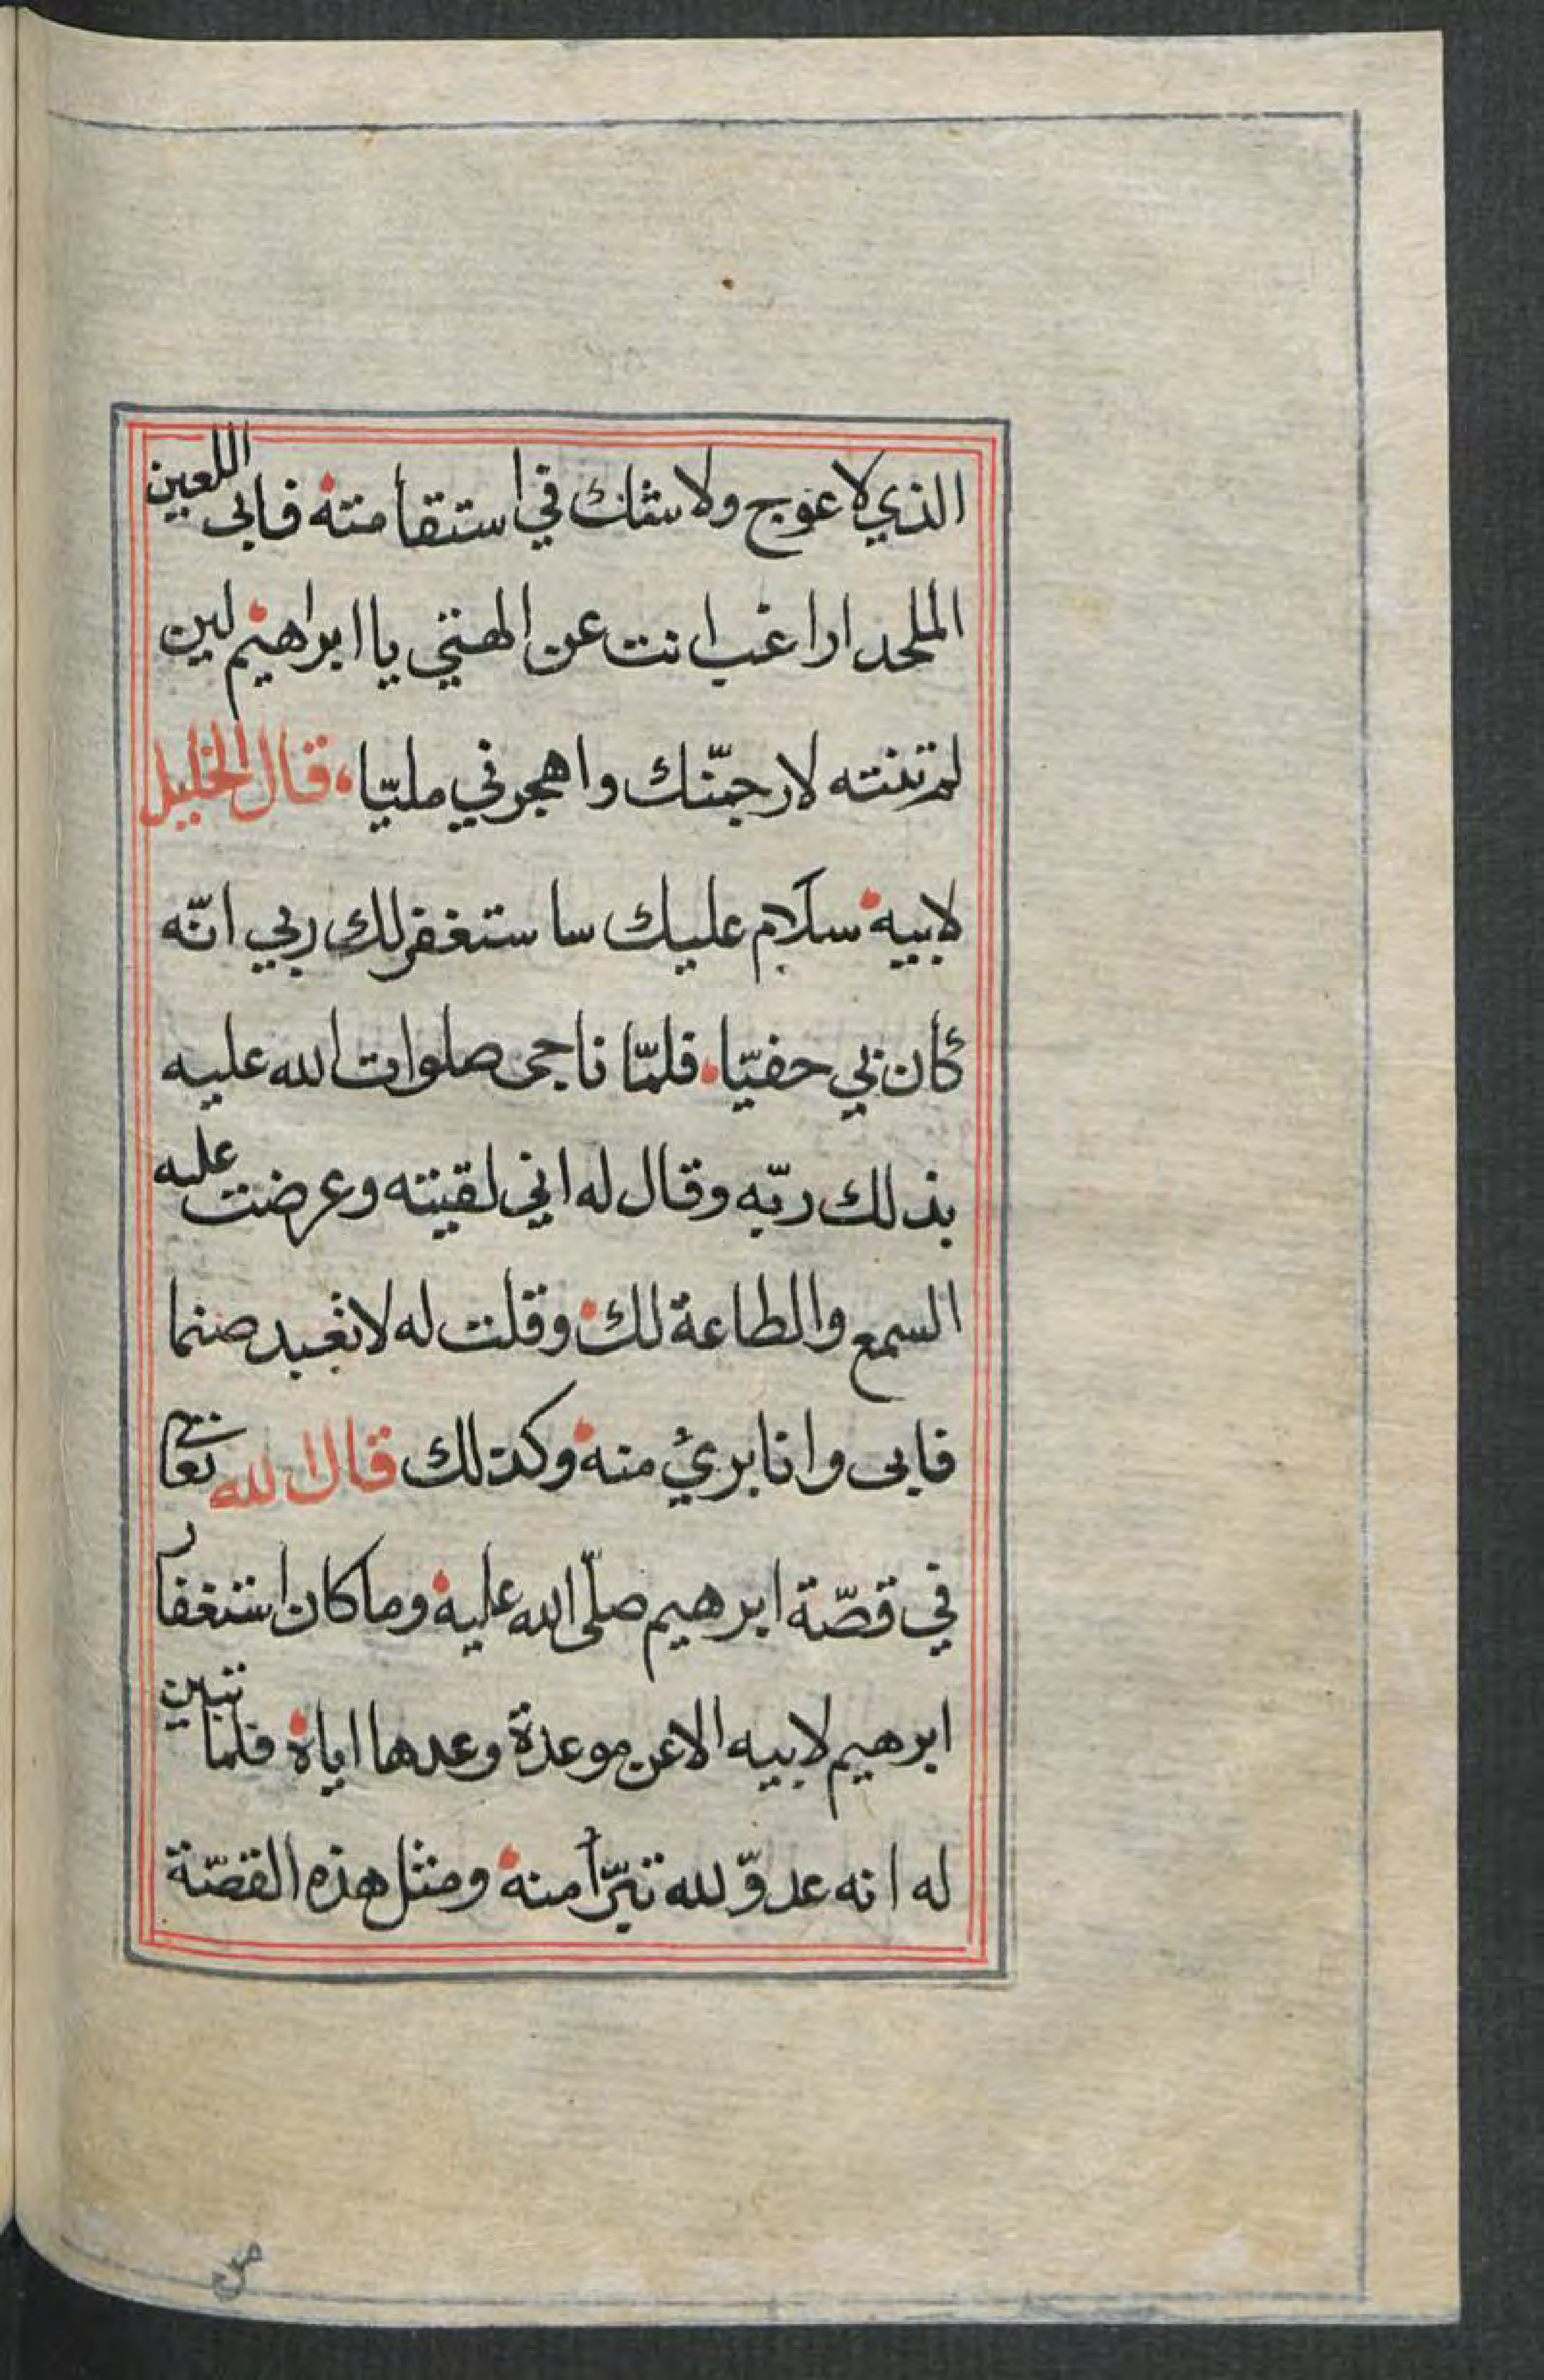 الذي لا عوج ولا شك في استقامته فابى اللعين
الملحد اراغب انت عن الهتي يا ابراهيم لين
لم تنته لارجمنّك واهجرني مليّا، قال الخليل
لابيه سلام عليك ساستغفر لك ربي انّه
كان بي حفيّا، فلمّا ناجى صلوات الله عليه
بذلك ربّه وقال له اني لقيته وعرضت عليه
السمع والطاعة لك وقلت له لا تعبد صنما
فابى وانا برئ منه وكذلك قال الله تعالى
في قصّة ابرهيم صلّى الله عليه وما كان استغفار
ابرهيم لابيه الا عن موعدة وعدها اياه فلما تبين
له انه عدوّ لله تبرّأ منه ومثل هذه القصّة